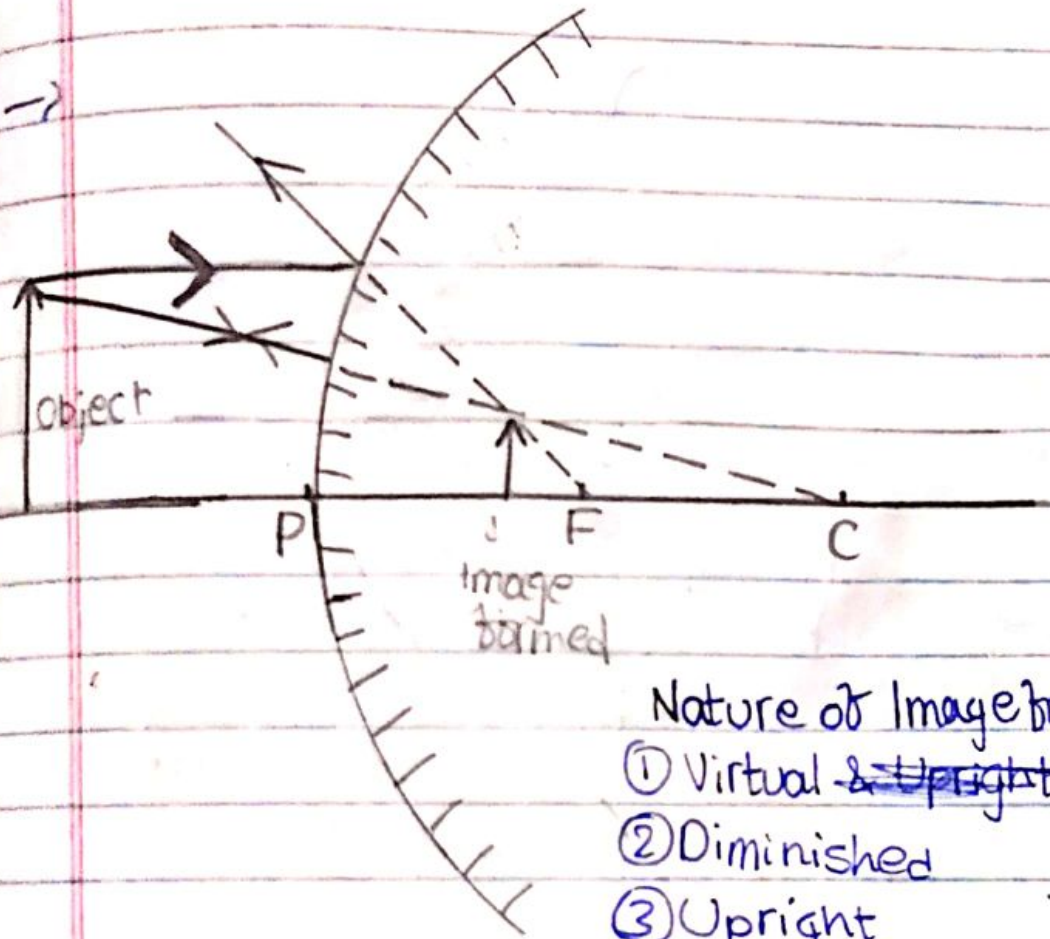 object
P
F
C
Image
formed
Nature of Image
① Virtual & Upright
② Diminished
③ Upright